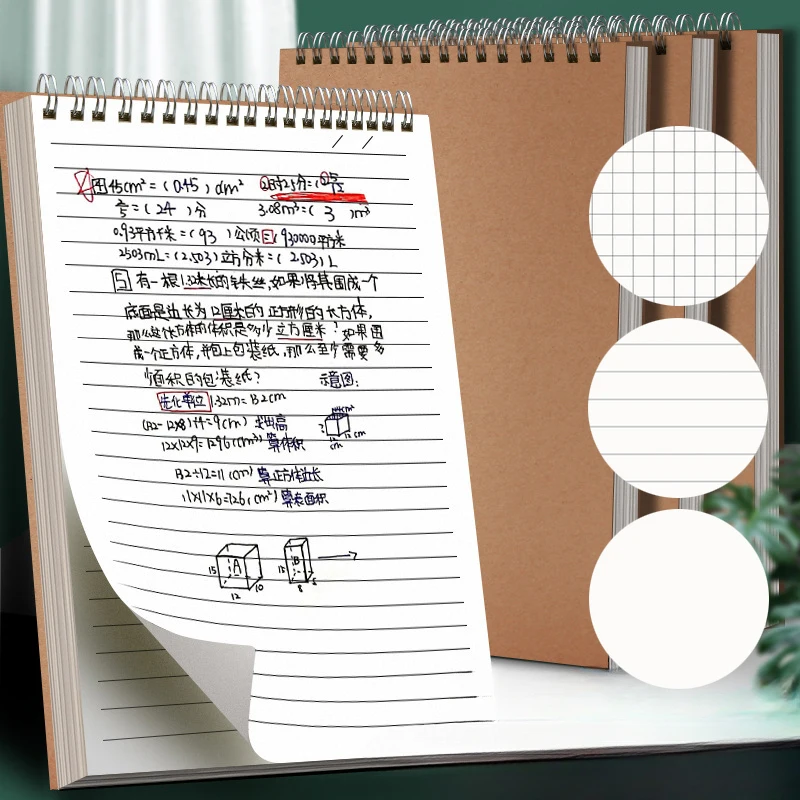 ④ 45cm² = (0.45) dm² 2时25分=(2 5/12)时
2/5=(24)分 3.08m³=(3)m³
0.93平方千米=(93)公顷=(930000平方米
2503mL=(2.503)立方分米=(2.503)L
5 有一根1.32米长的铁丝,如果将其围成一个
底面是边长为12厘米的正方形的长方体,
那么这个长方体的体积是多少立方厘米?如果围
成一个正方体,并包上包装纸,那么至少需要多
少面积的包装纸? 示意图:
先化单位 1.32m=132cm
(132-12×8)÷4=9(cm) 求出高
12×12×9=1296(cm³) 算体积
12 cm
cm
132÷12=11(cm) 算正方体边长
11×11×6=726(cm²) 算表面积
A B
15 15
12 10 8 5